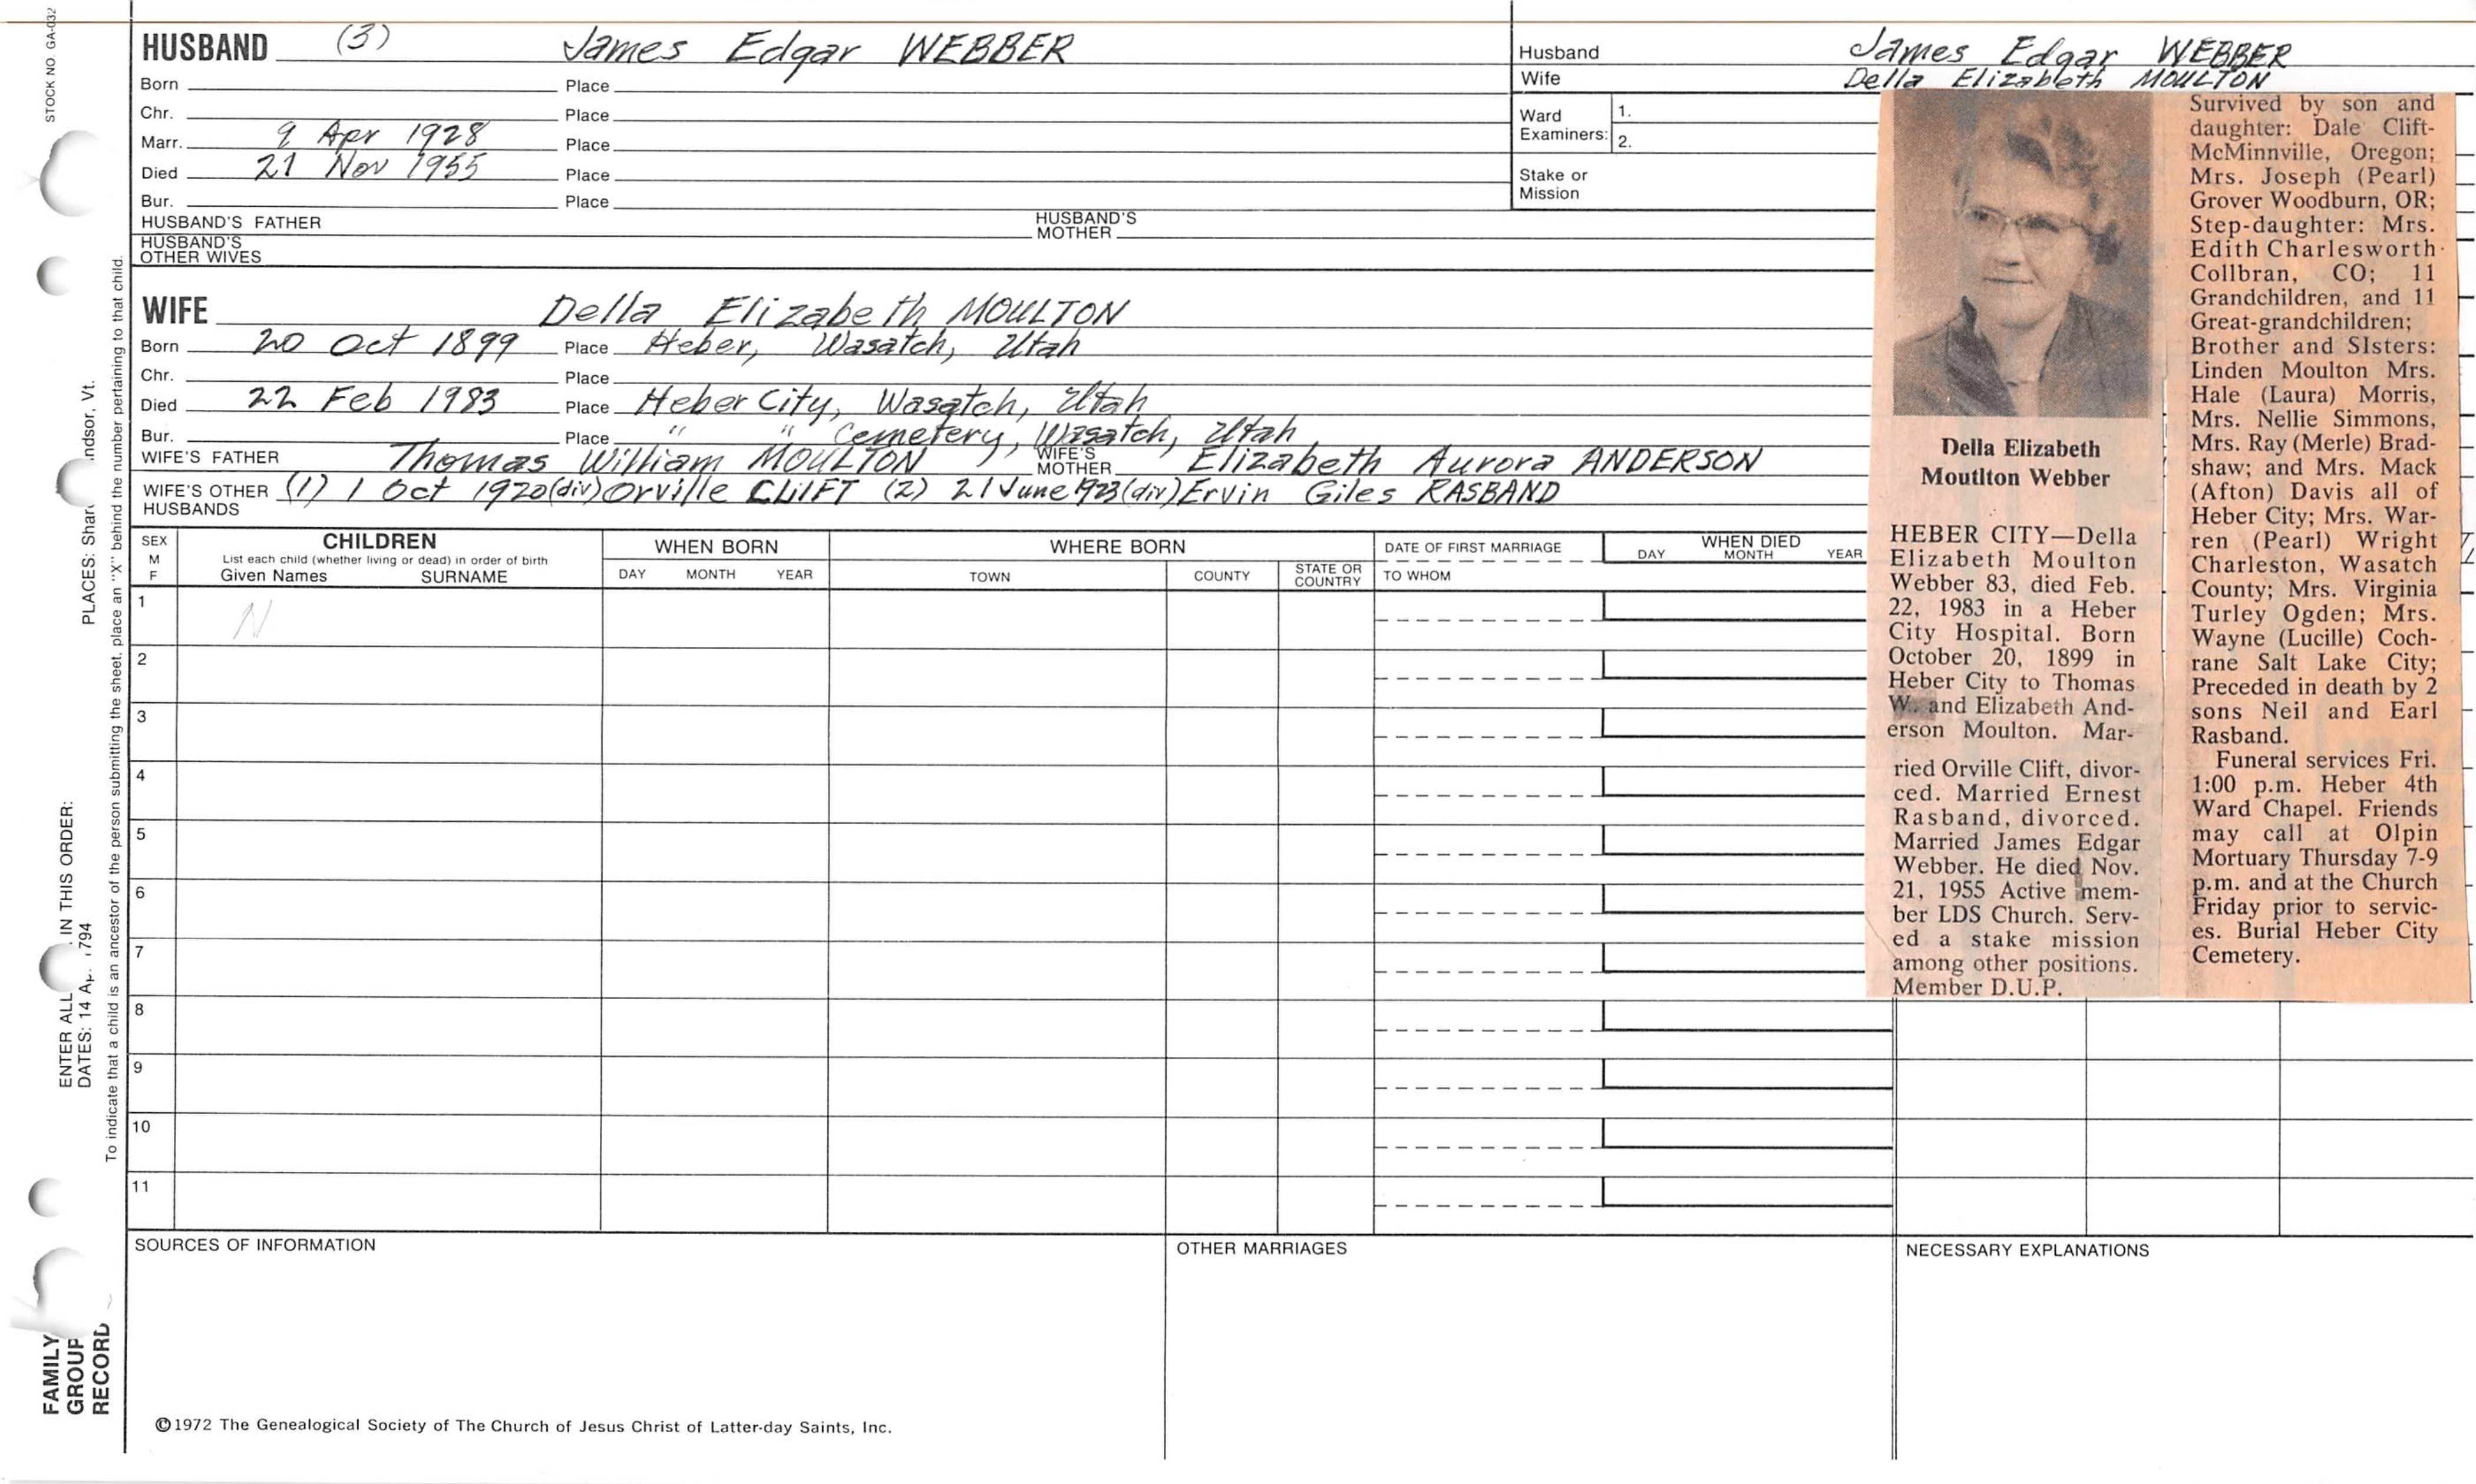 STOCK NO. GA-032
HUSBAND (3) James Edgar WEBBER
Born Place
Chr. Place
Marr. 9 Apr 1928 Place
Died 21 Nov 1955 Place
Bur. Place
HUSBAND'S FATHER HUSBAND'S MOTHER
HUSBAND'S OTHER WIVES
Husband James Edgar WEBBER
Wife Della Elizabeth MOULTON
Ward Examiners: 1.
2.
Stake or Mission
WIFE Della Elizabeth MOULTON
Born 20 Oct 1899 Place Heber, Wasatch, Utah
Chr. Place
Died 22 Feb 1983 Place Heber City, Wasatch, Utah
Bur. Place " " Cemetery, Wasatch, Utah
WIFE'S FATHER Thomas William MOULTON WIFE'S MOTHER Elizabeth Aurora ANDERSON
WIFE'S OTHER HUSBANDS (1) 1 Oct 1920 (div) Orville CLIIFT (2) 21 June 1923 (div) Ervin Giles RASBAND
SEX M F
CHILDREN
List each child (whether living or dead) in order of birth
Given Names SURNAME
WHEN BORN
DAY MONTH YEAR
WHERE BORN
TOWN COUNTY STATE OR COUNTRY
DATE OF FIRST MARRIAGE
TO WHOM
WHEN DIED
DAY MONTH YEAR
1 N
2
3
4
5
6
7
8
9
10
11
SOURCES OF INFORMATION
OTHER MARRIAGES
NECESSARY EXPLANATIONS
©1972 The Genealogical Society of The Church of Jesus Christ of Latter-day Saints, Inc.
Della Elizabeth
Moutlton Webber
HEBER CITY—Della
Elizabeth Moulton
Webber 83, died Feb.
22, 1983 in a Heber
City Hospital. Born
October 20, 1899 in
Heber City to Thomas
W. and Elizabeth And-
erson Moulton. Mar-
ried Orville Clift, divor-
ced. Married Ernest
Rasband, divorced.
Married James Edgar
Webber. He died Nov.
21, 1955 Active mem-
ber LDS Church. Serv-
ed a stake mission
among other positions.
Member D.U.P.
Survived by son and
daughter: Dale Clift-
McMinnville, Oregon;
Mrs. Joseph (Pearl)
Grover Woodburn, OR;
Step-daughter: Mrs.
Edith Charlesworth
Collbran, CO; 11
Grandchildren, and 11
Great-grandchildren;
Brother and SIsters:
Linden Moulton Mrs.
Hale (Laura) Morris,
Mrs. Nellie Simmons,
Mrs. Ray (Merle) Brad-
shaw; and Mrs. Mack
(Afton) Davis all of
Heber City; Mrs. War-
ren (Pearl) Wright
Charleston, Wasatch
County; Mrs. Virginia
Turley Ogden; Mrs.
Wayne (Lucille) Coch-
rane Salt Lake City;
Preceded in death by 2
sons Neil and Earl
Rasband.
Funeral services Fri.
1:00 p.m. Heber 4th
Ward Chapel. Friends
may call at Olpin
Mortuary Thursday 7-9
p.m. and at the Church
Friday prior to servic-
es. Burial Heber City
Cemetery.
FAMILY
GROUP
RECORD
ENTER ALL IN THIS ORDER:
DATES: 14 A 794
PLACES: Shar ndsor, Vt.
To indicate that a child is an ancestor of the person submitting the sheet, place an "X" behind the number pertaining to that child.